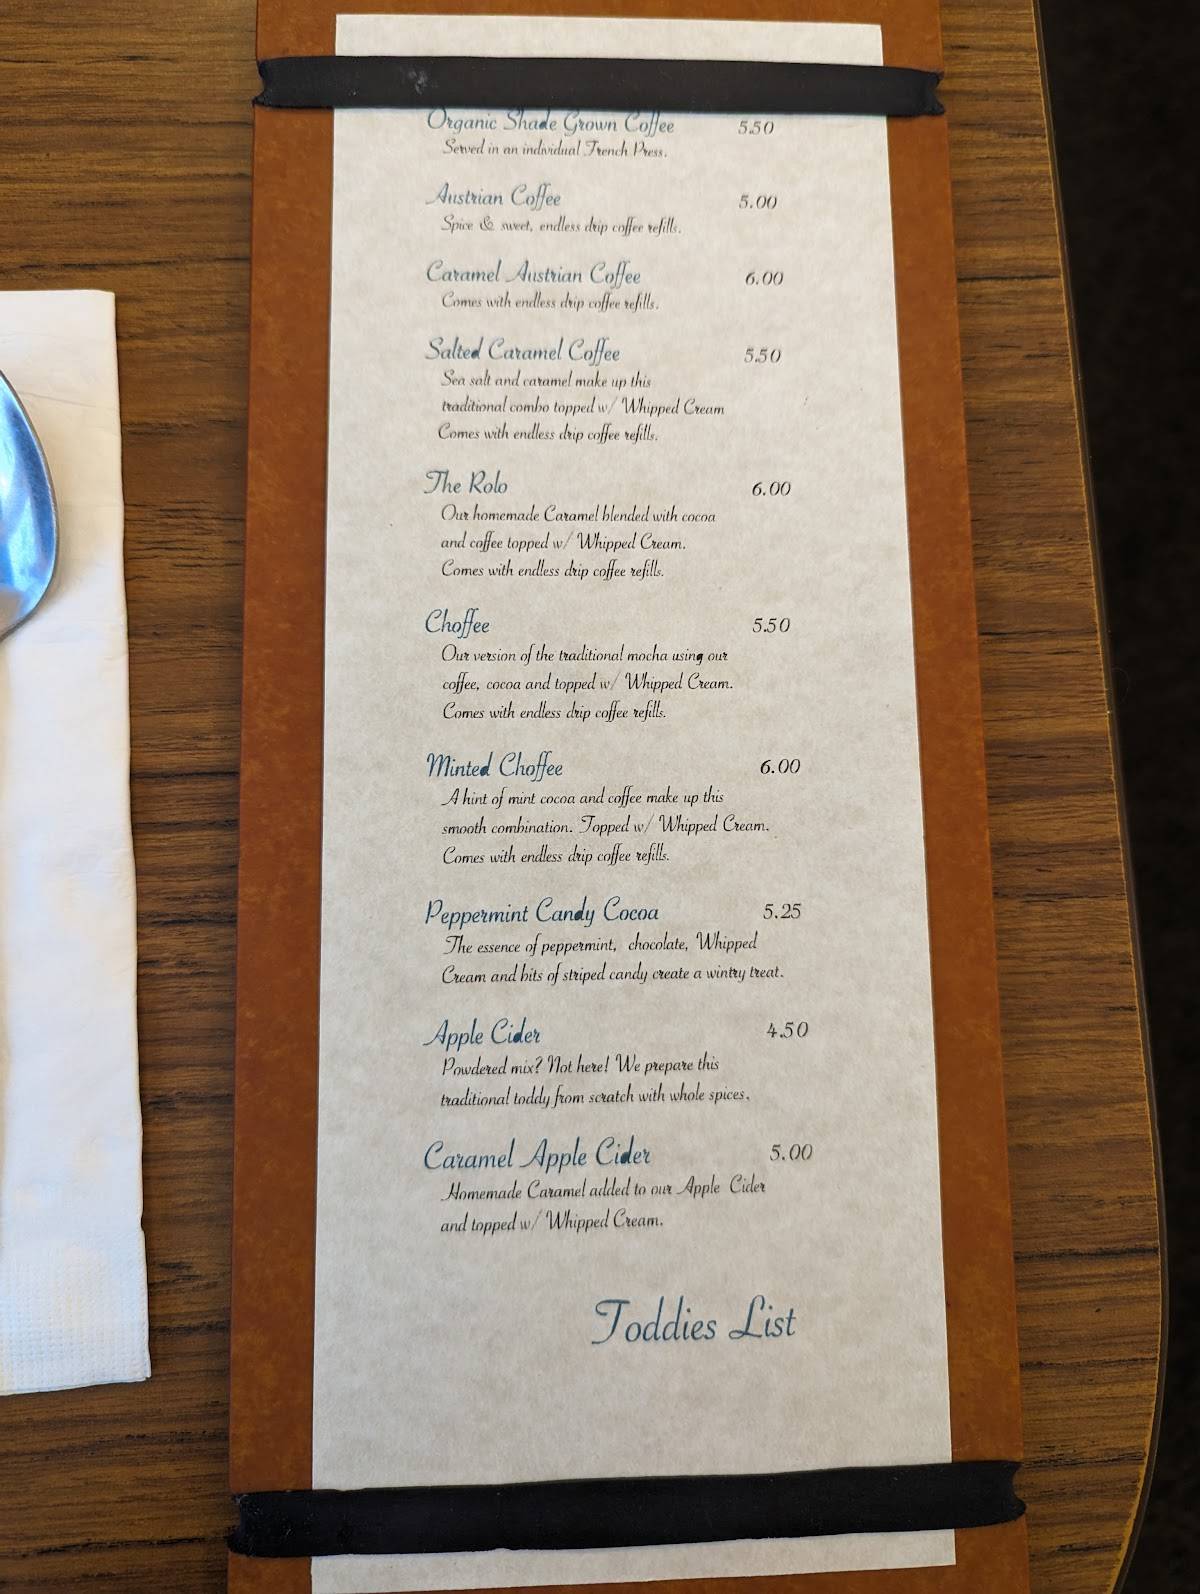 Organic Shade Grown Coffee 5.50
Served in an individual French Press.
Austrian Coffee 5.00
Spice & sweet, endless drip coffee refills.
Caramel Austrian Coffee 6.00
Comes with endless drip coffee refills.
Salted Caramel Coffee 5.50
Sea salt and caramel make up this
traditional combo topped w/ Whipped Cream
Comes with endless drip coffee refills.
The Rolo 6.00
Our homemade Caramel blended with cocoa
and coffee topped w/ Whipped Cream.
Comes with endless drip coffee refills.
Choffee 5.50
Our version of the traditional mocha using our
coffee, cocoa and topped w/ Whipped Cream.
Comes with endless drip coffee refills.
Minted Choffee 6.00
A hint of mint cocoa and coffee make up this
smooth combination. Topped w/ Whipped Cream.
Comes with endless drip coffee refills.
Peppermint Candy Cocoa 5.25
The essence of peppermint, chocolate, Whipped
Cream and bits of striped candy create a wintry treat.
Apple Cider 4.50
Powdered mix? Not here! We prepare this
traditional toddy from scratch with whole spices.
Caramel Apple Cider 5.00
Homemade Caramel added to our Apple Cider
and topped w/ Whipped Cream.
Toddies List